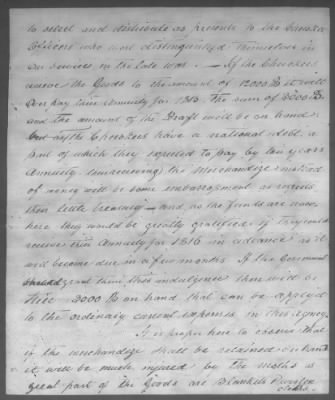 to select and distribute as presents to the Cherokee
Officers who most distinguished themselves in
our services in the late war. — If the Cherokees
receive the Goods to the amount of 12000 $ it will
over pay their annuity for 1815. The sum of 3000 $
and the amount of the Draft will be on hand
but as the Cherokees have a national debt, a
part of which they expected to pay by this years
annuity. receiving the Merchandize instead
of money will be some embarrassment as respects
their little treasury — and as the funds are now
here they would be greatly gratified if they could
receive their annuity for 1816 in advance as it
will become due in a few months. If the Government
should grant them this indulgence there will be
here 3000 $ on hand that can be applied
to the ordinary current expenses in this agency.
It is proper here to observe that
if the merchandize shall be retained on hand
it will be much injured by the moths as
great part of the Goods are Blankets
cloths.